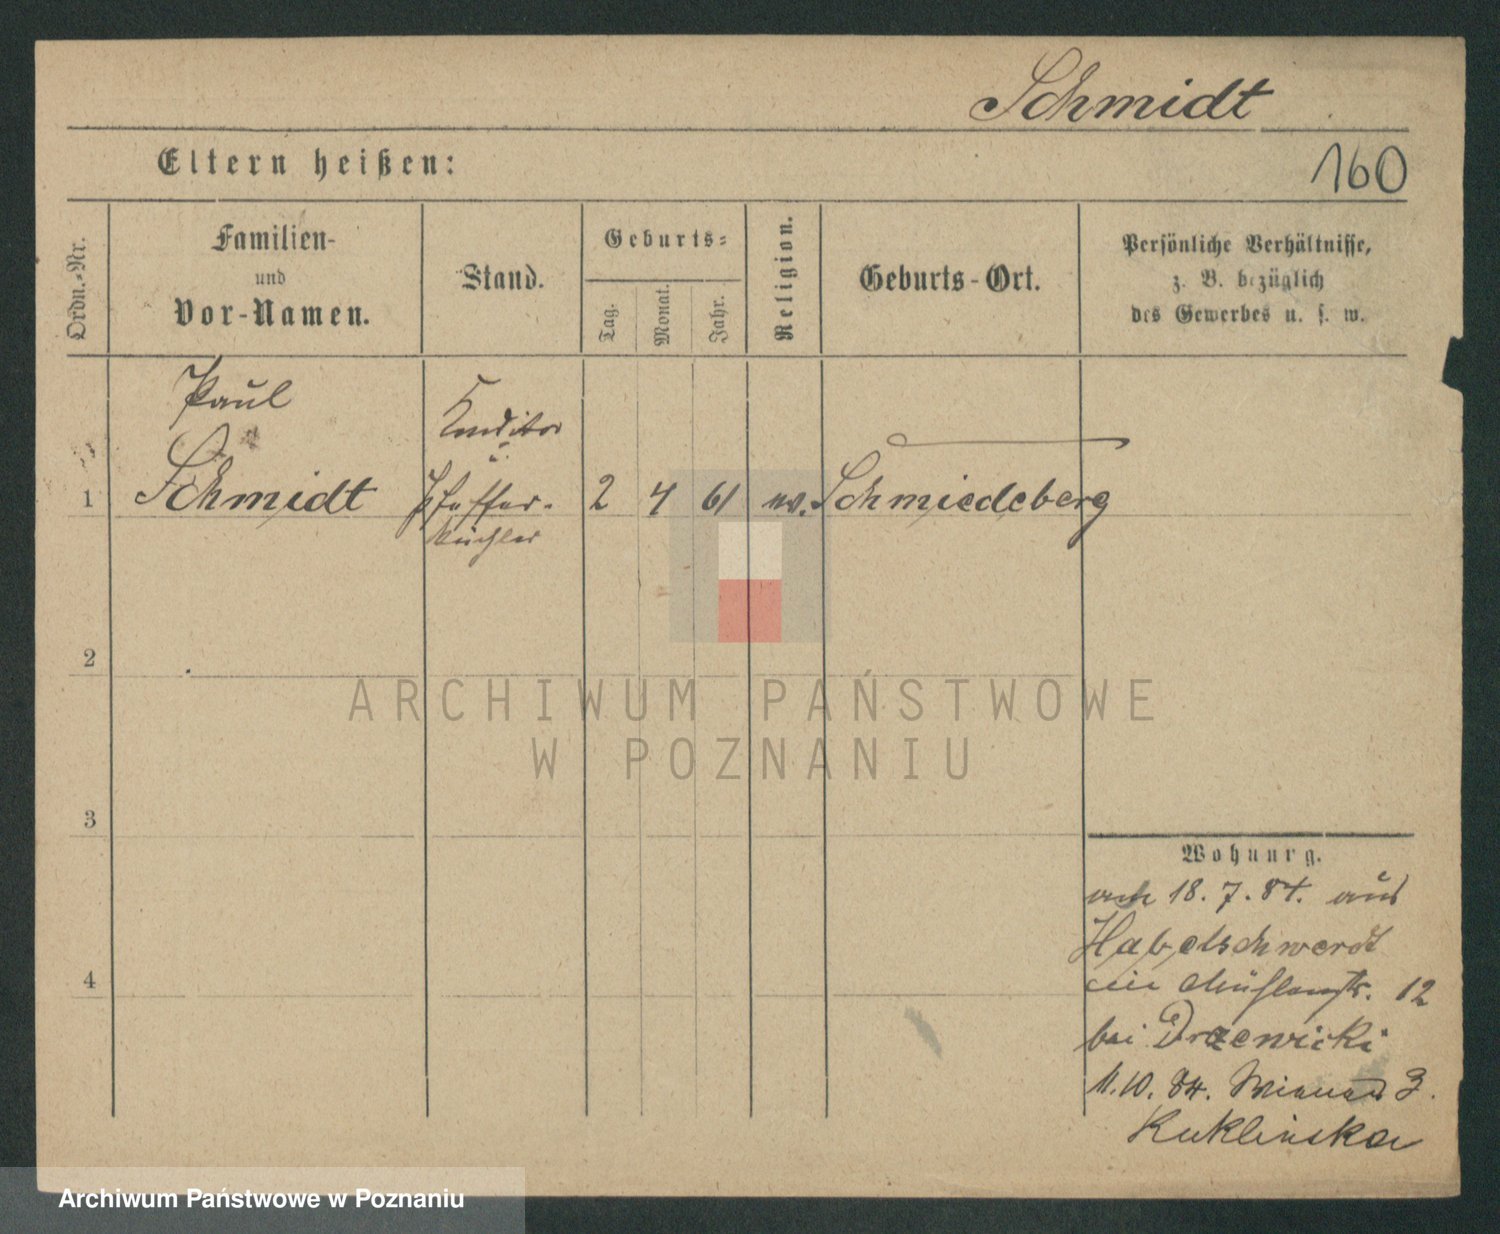 Schmidt
Eltern heißen:
160
Ordn.-Nr.
Familien-
und
Vor-Namen.
Stand.
Geburts-
Tag.
Monat.
Jahr.
Religion.
Geburts-Ort.
Persönliche Verhältnisse,
z. B. bezüglich
des Gewerbes u. s. w.
Paul
Schmidt
Konditor
u.
Pfeffer-
küchler
1
2 4 61
Schmiedeberg
2
3
4
Wohnung.
18. 7. 84. aus
Habelschwerdt
Mühlenstr. 12
bei Drzewicki
11. 10. 84. 3.
Kuklinska
ARCHIWUM PAŃSTWOWE
W POZNANIU
Archiwum Państwowe w Poznaniu